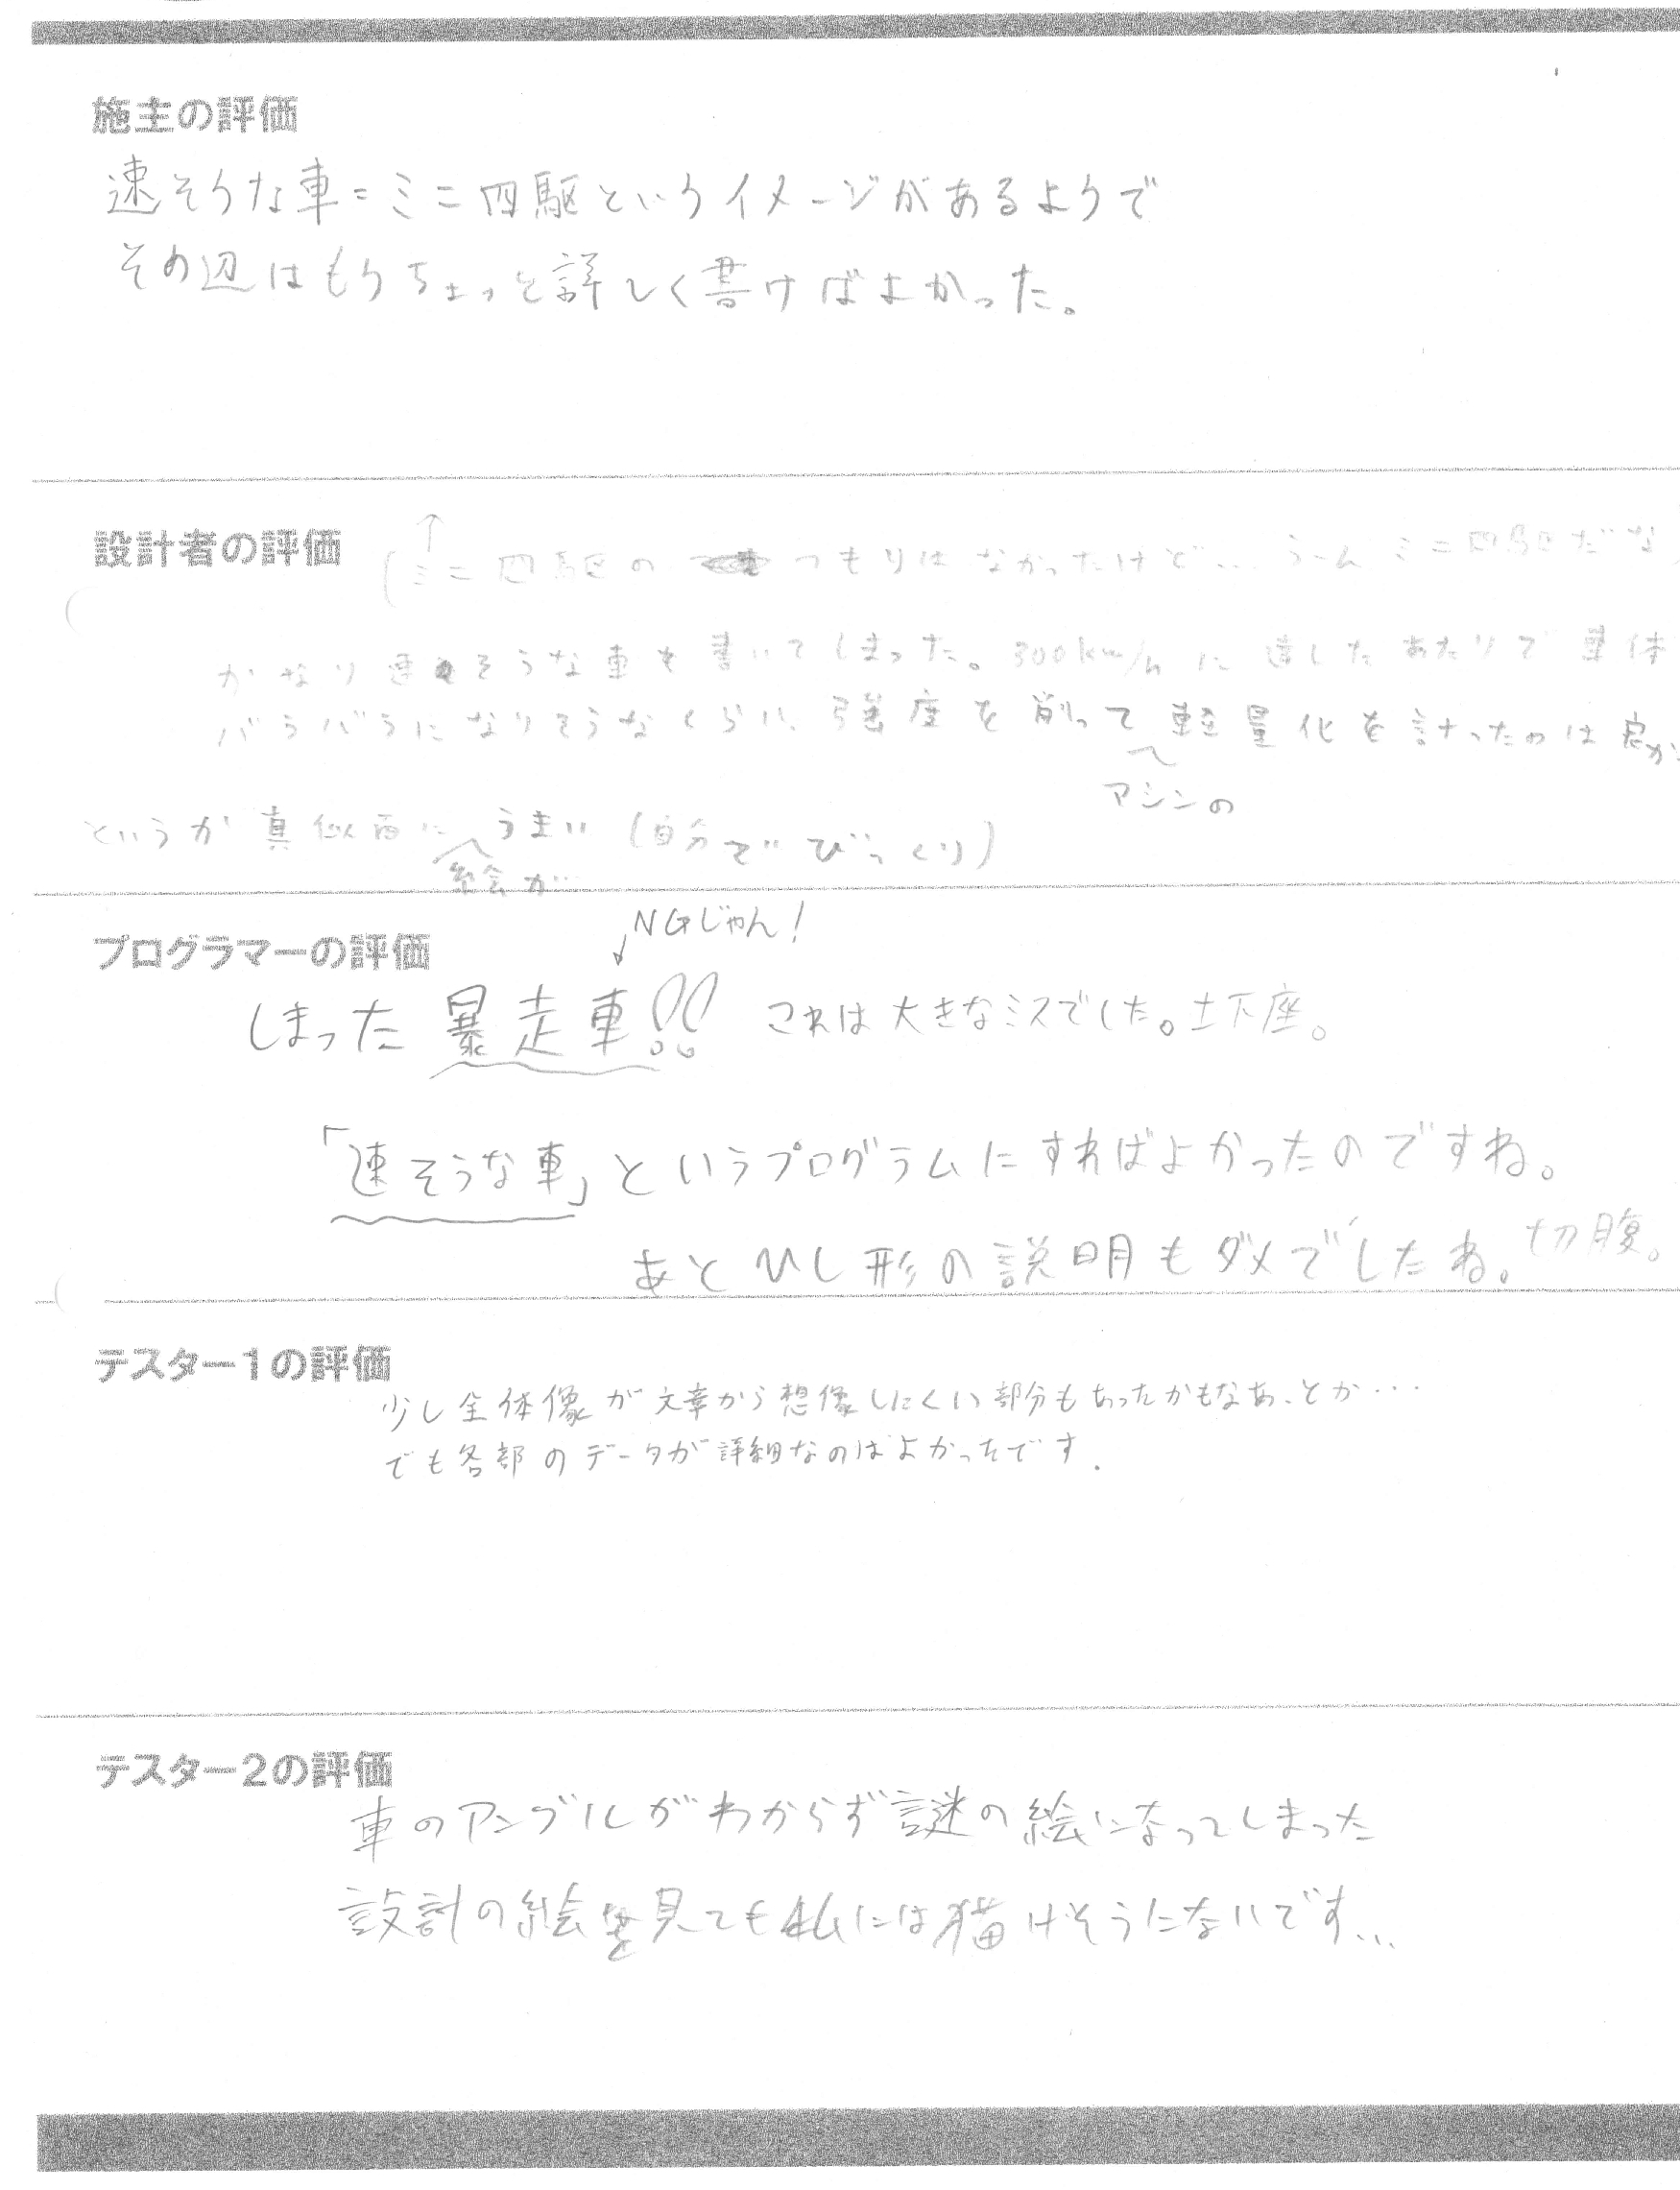 施主の評価
速そうな車=ミニ四駆というイメージがあるようで
その辺はもうちょっと詳しく書けばよかった。
設計者の評価
(↑ミニ四駆の つもりはなかったけど… うーん ミニ四駆だな
かなり速そうな車を書いてしまった。300km/hに達したあたりで車体
バラバラになりそうなくらい、強度を削って軽量化を計ったのは良か
マシンの
というか真似面にうまい(自分でびっくり)
絵が…
NGじゃん!
プログラマーの評価
しまった 暴走車!! これは大きなミスでした。土下座。
「速そうな車」というプログラムにすればよかったのですね。
あとひし形の説明もダメでしたね。切腹。
テスター1の評価
少し全体像が文章から想像しにくい部分もあったかもなあ、とか…
でも各部のデータが詳細なのはよかったです.
テスター2の評価
車のアングルがわからず謎の絵になってしまった
設計の絵を見ても私には描けそうにないです…